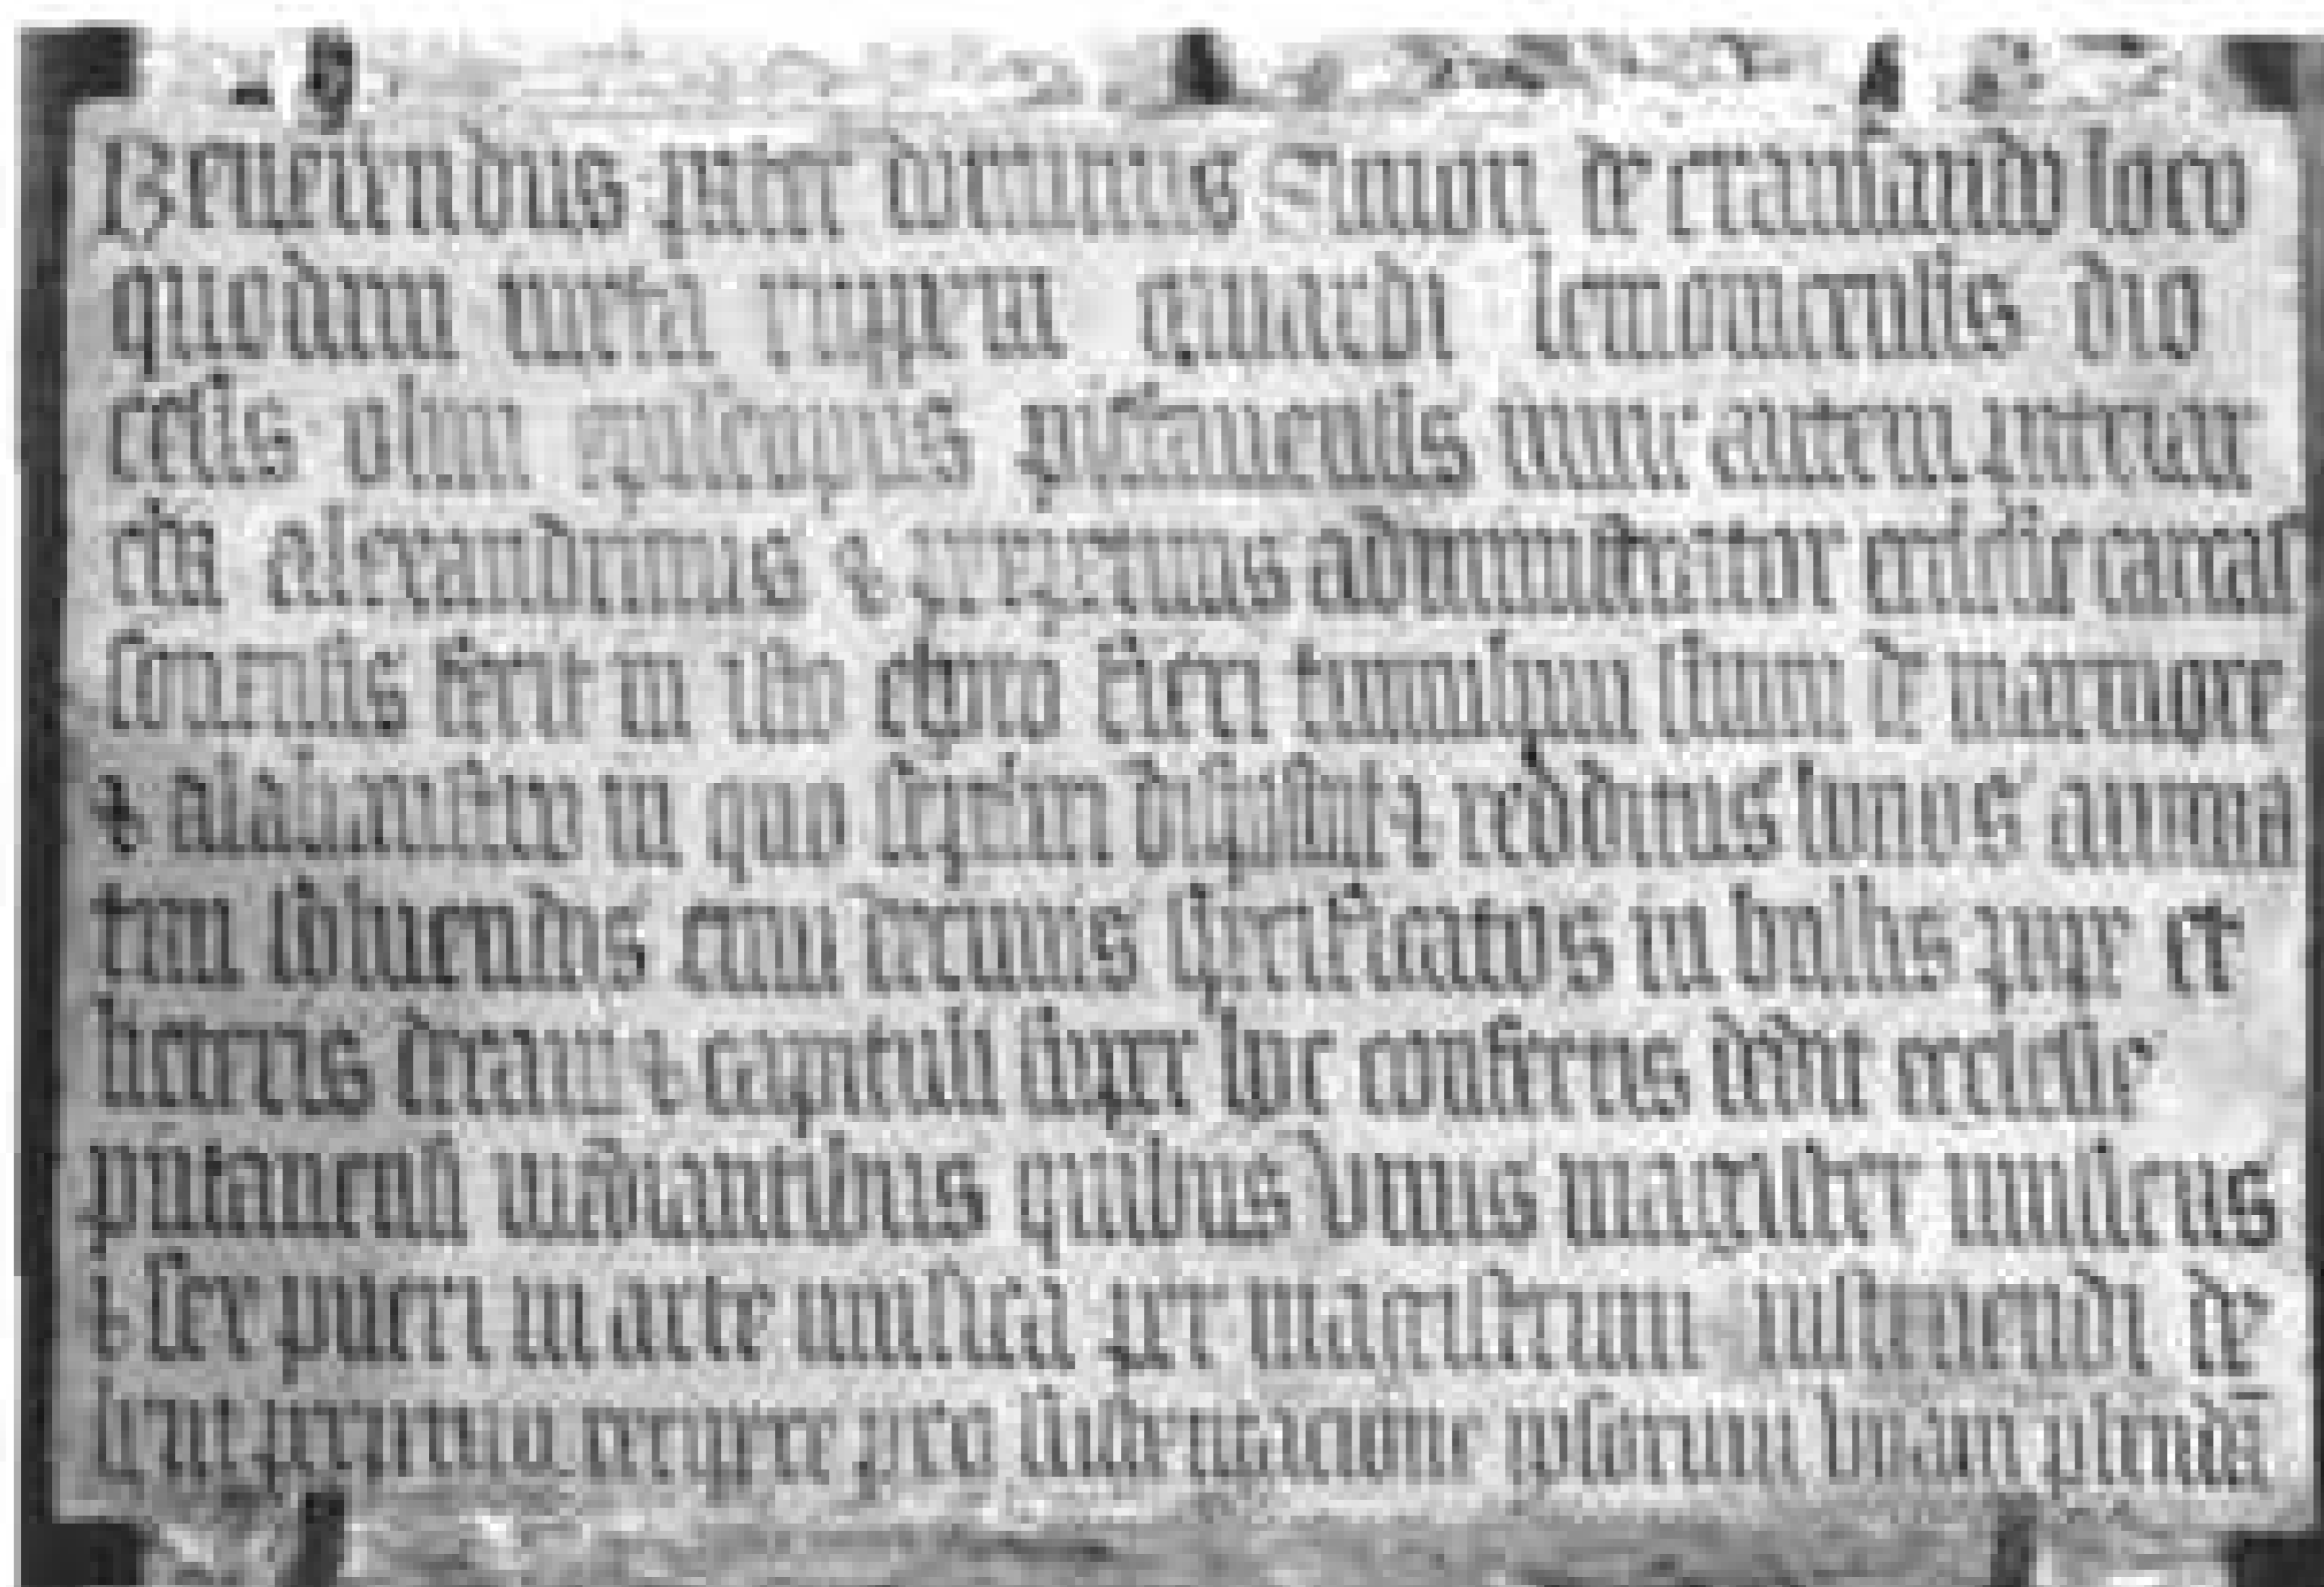 Reuerendus pater dominus Simon de cramaudo loco
quodam iuxta ruppem cauardi lemouicensis dio
cesis olim episcopus pictauensis nunc autem patriar
cha alexandrinus & perpetuus administrator ecclesie carcas
sonensis fecit in isto choro fieri tumulum suum de marmore
& alabaustro in quo sepeliri disposuit & redditus bonos anima
tim soluendos cum terminis specificatos in bullis pape et
litteris decani & capituli super hoc confectis dedit ecclesie
pictauensi mediantibus quibus vnus magister musicus
& sex pueri in arte musica per magistrum instruendi de
bent perpetuo percipere pro sustentacione ipsorum vnam prebendā